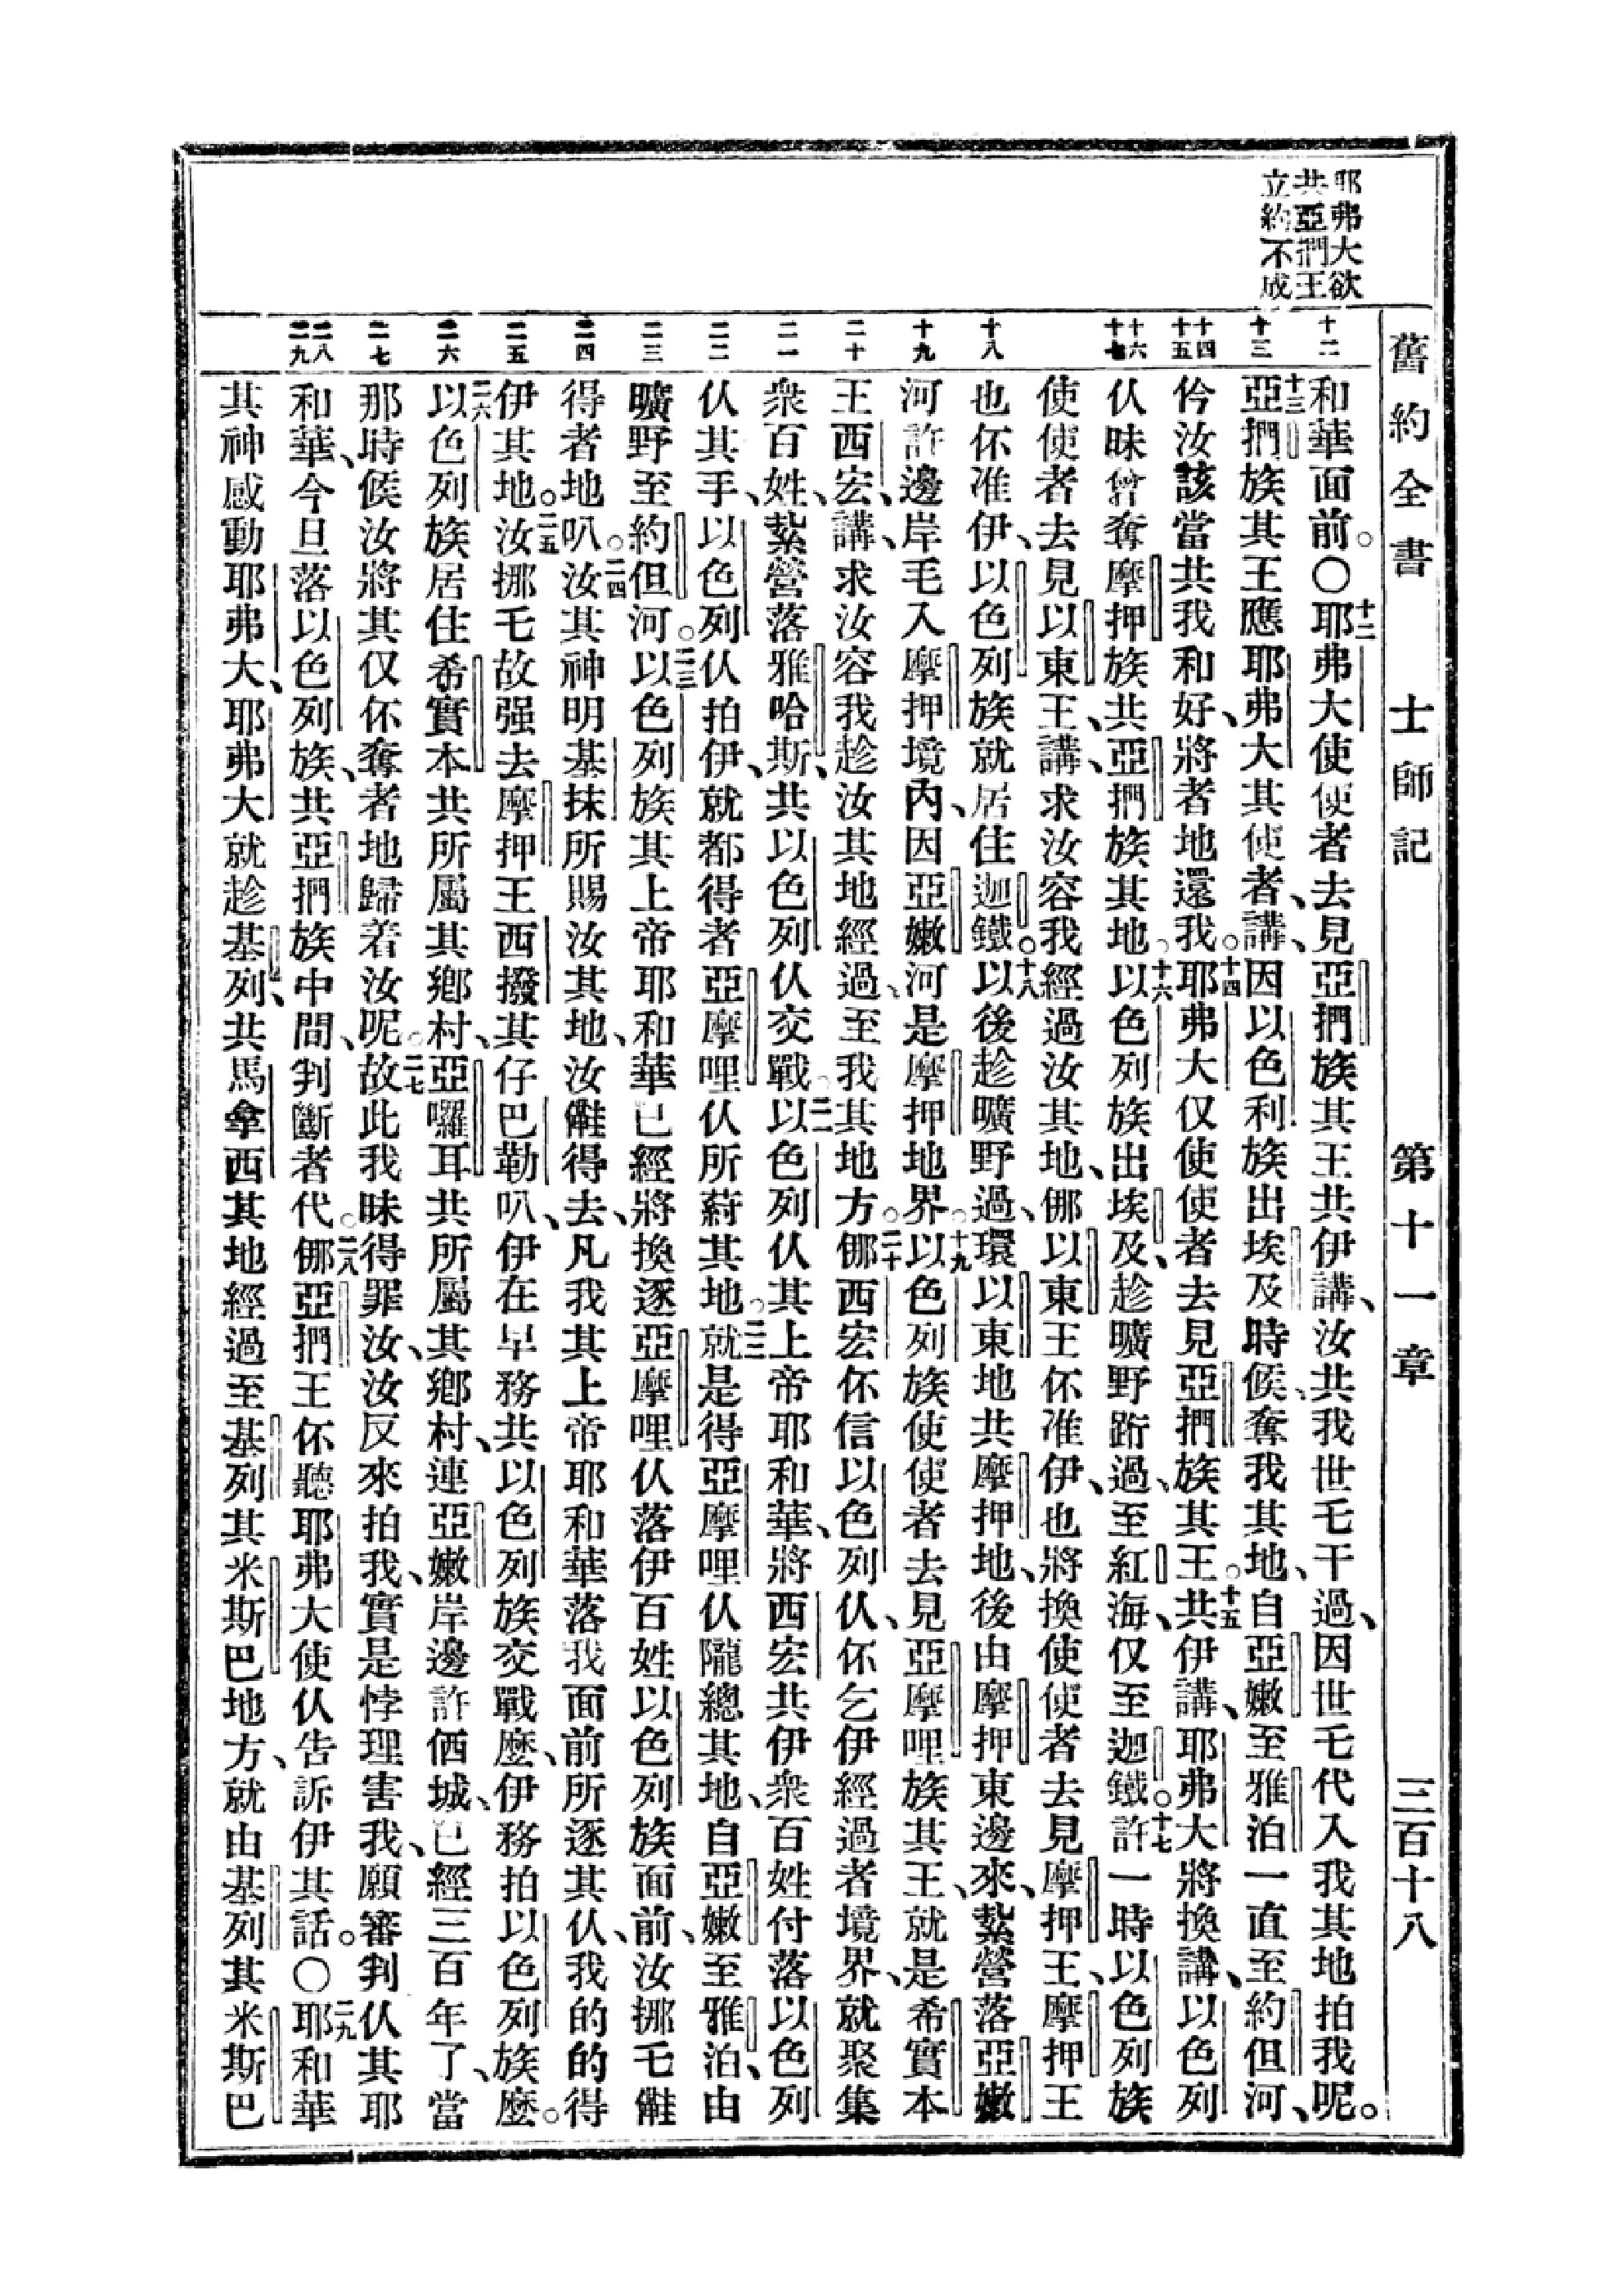 舊約全書 士師記 第十一章 三百十八
耶弗大欲
共亞捫王
立約不成
十二
十三
十四
十五
十六
十七
十八
十九
二十
二一
二二
二三
二四
二五
二六
二七
二八
二九
和華面前。〇十二耶弗大使使者去見亞捫族其王共伊講、汝共我世乇干過、因世乇代入我其地拍我呢。
十三亞捫族其王應耶弗大其使者、講、因以色利族出埃及時候、奪我其地、自亞嫩至雅泊一直至約但河、
仱汝該當共我和好、將者地還我。十四耶弗大仅使使者去見亞捫族其王。十五共伊講、耶弗大將換講、以色列
仈昧曾奪摩押族共亞捫族其地。十六以色列族出埃及、趁曠野跴過、至紅海、仅至迦鐵。十七許一時以色列族
使使者去見以東王、講、求汝容我經過汝其地、㑚以東王伓准伊、也將換使使者去見摩押王、摩押王
也伓准伊、以色列族就居住迦鐵。十八以後趁曠野過、環以東地共摩押地、後由摩押東邊來、紮營落亞嫩
河許邊岸乇入摩押境內、因亞嫩河是摩押地界。十九以色列族使使者去見亞摩哩族其王、就是希實本
王西宏、講、求汝容我趁汝其地經過、至我其地方。二十㑚西宏伓信以色列仈、伓乞伊經過者境界、就聚集
衆百姓、紮營落雅哈斯、共以色列仈交戰。二一以色列仈其上帝耶和華、將西宏共伊衆百姓付落以色列
仈其手、以色列仈拍伊、就都得者亞摩哩仈所蒔其地。二二就是得亞摩哩仈隴總其地、自亞嫩至雅泊、由
曠野至約但河。二三以色列族其上帝耶和華已經將換逐亞摩哩仈落伊百姓以色列族面前、汝挪乇㒕
得者地叭。二四汝其神明基抹所賜汝其地、汝㒕得去、凡我其上帝耶和華落我面前所逐其仈、我的的得
伊其地。二五汝挪乇故强去摩押王西撥其仔巴勒叭、伊在早務共以色列族交戰麽、伊務拍以色列族麽。
二六以色列族居住希實本共所屬其鄉村、亞囉耳共所屬其鄉村、連亞嫩岸邊許㑚城、已經三百年了、當
那時候汝將其仅伓奪者地歸着汝呢。二七故此我昧得罪汝、汝反來拍我、實是悖理害我、願審判仈其耶
和華、今旦落以色列族、共亞捫族中間、判斷者代。二八㑚亞捫王伓聽耶弗大使仈告訴伊其話。〇二九耶和華
其神感動耶弗大、耶弗大就趁基列、共馬拿西其地經過至基列其米斯巴地方、就由基列其米斯巴